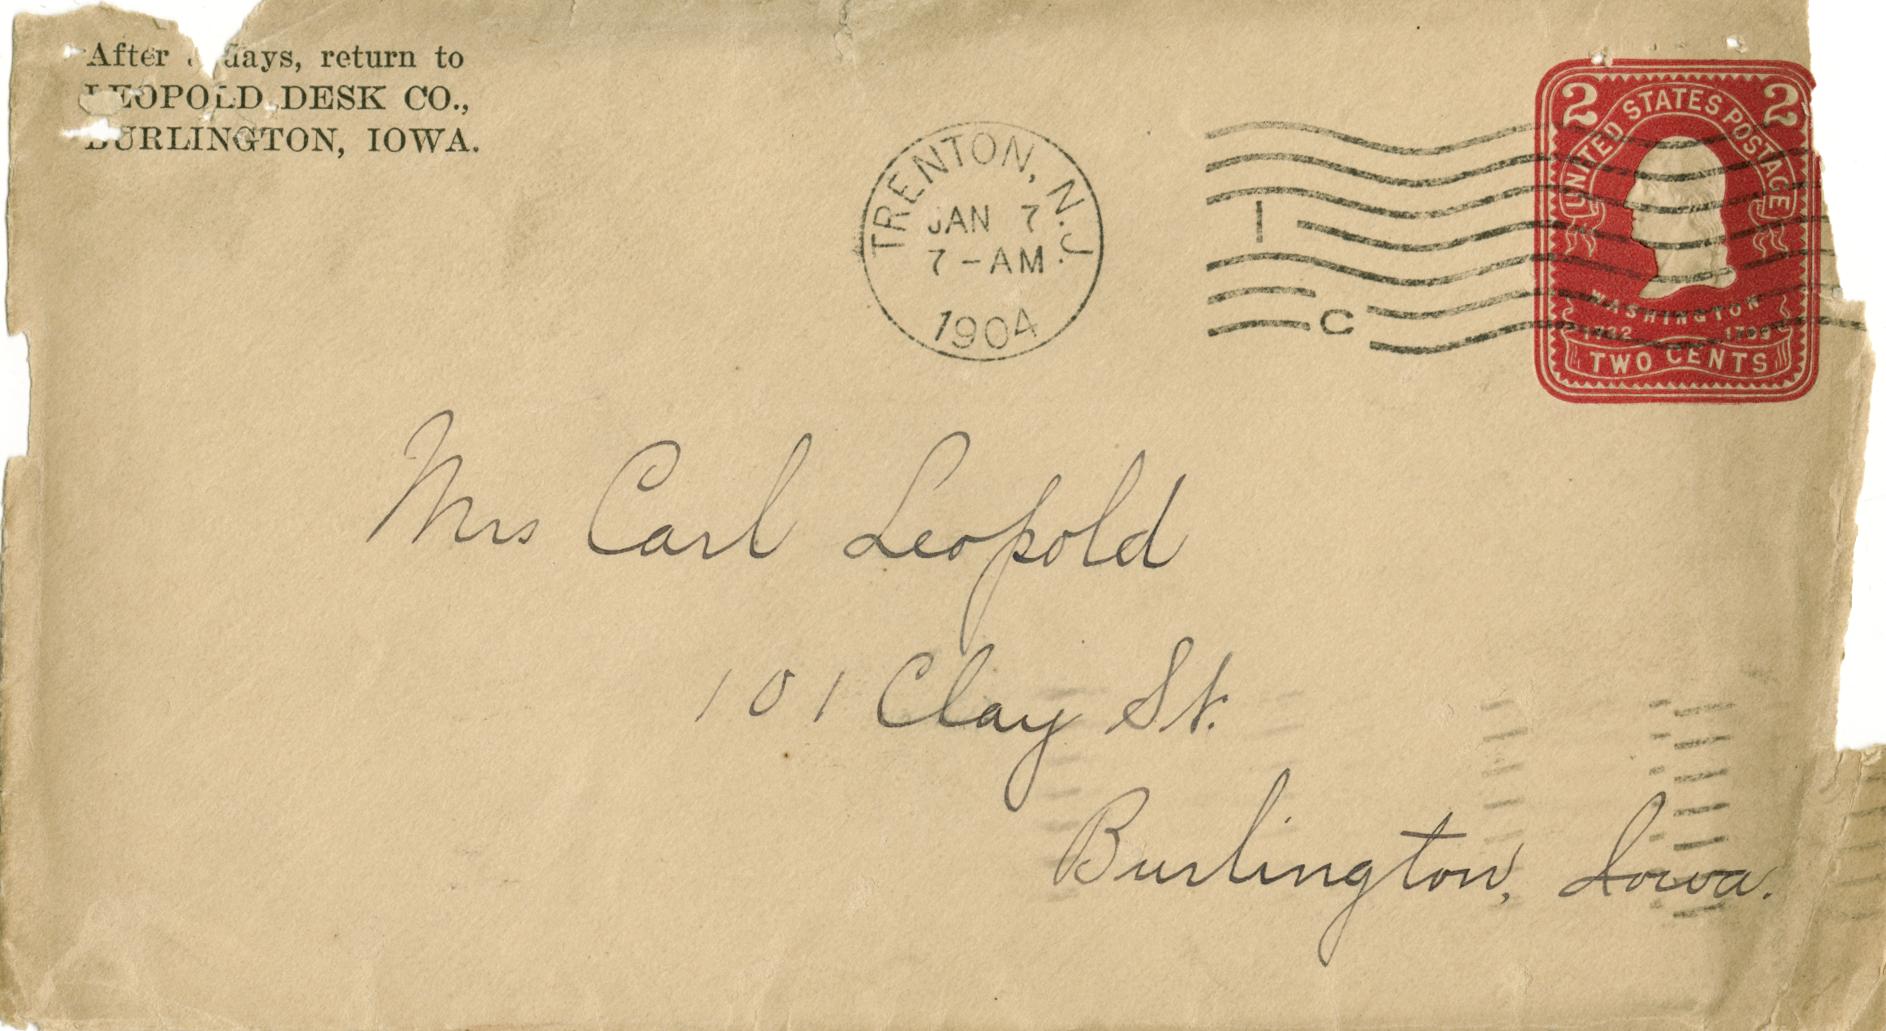 After days, return to
LEOPOLD DESK CO.,
BURLINGTON, IOWA.
TRENTON, N.J.
JAN 7
7-AM
1904
1
C
2 2
UNITED STATES POSTAGE
WASHINGTON
1732 1799
TWO CENTS
Mrs Carl Leopold
101 Clay St.
Burlington, Iowa.